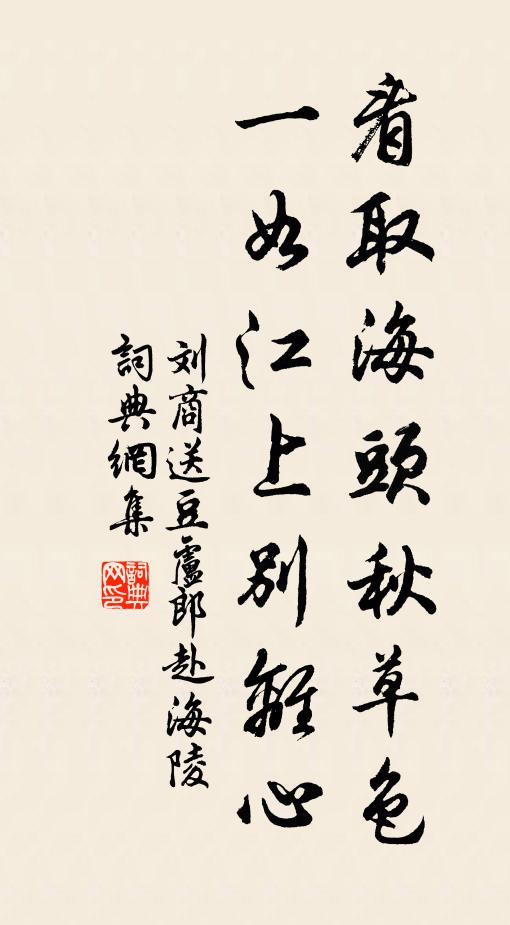 看取海頭秋草色
一如江上別離心
刘商送豆盧郎赴海陵
詞典網集
詞典网印